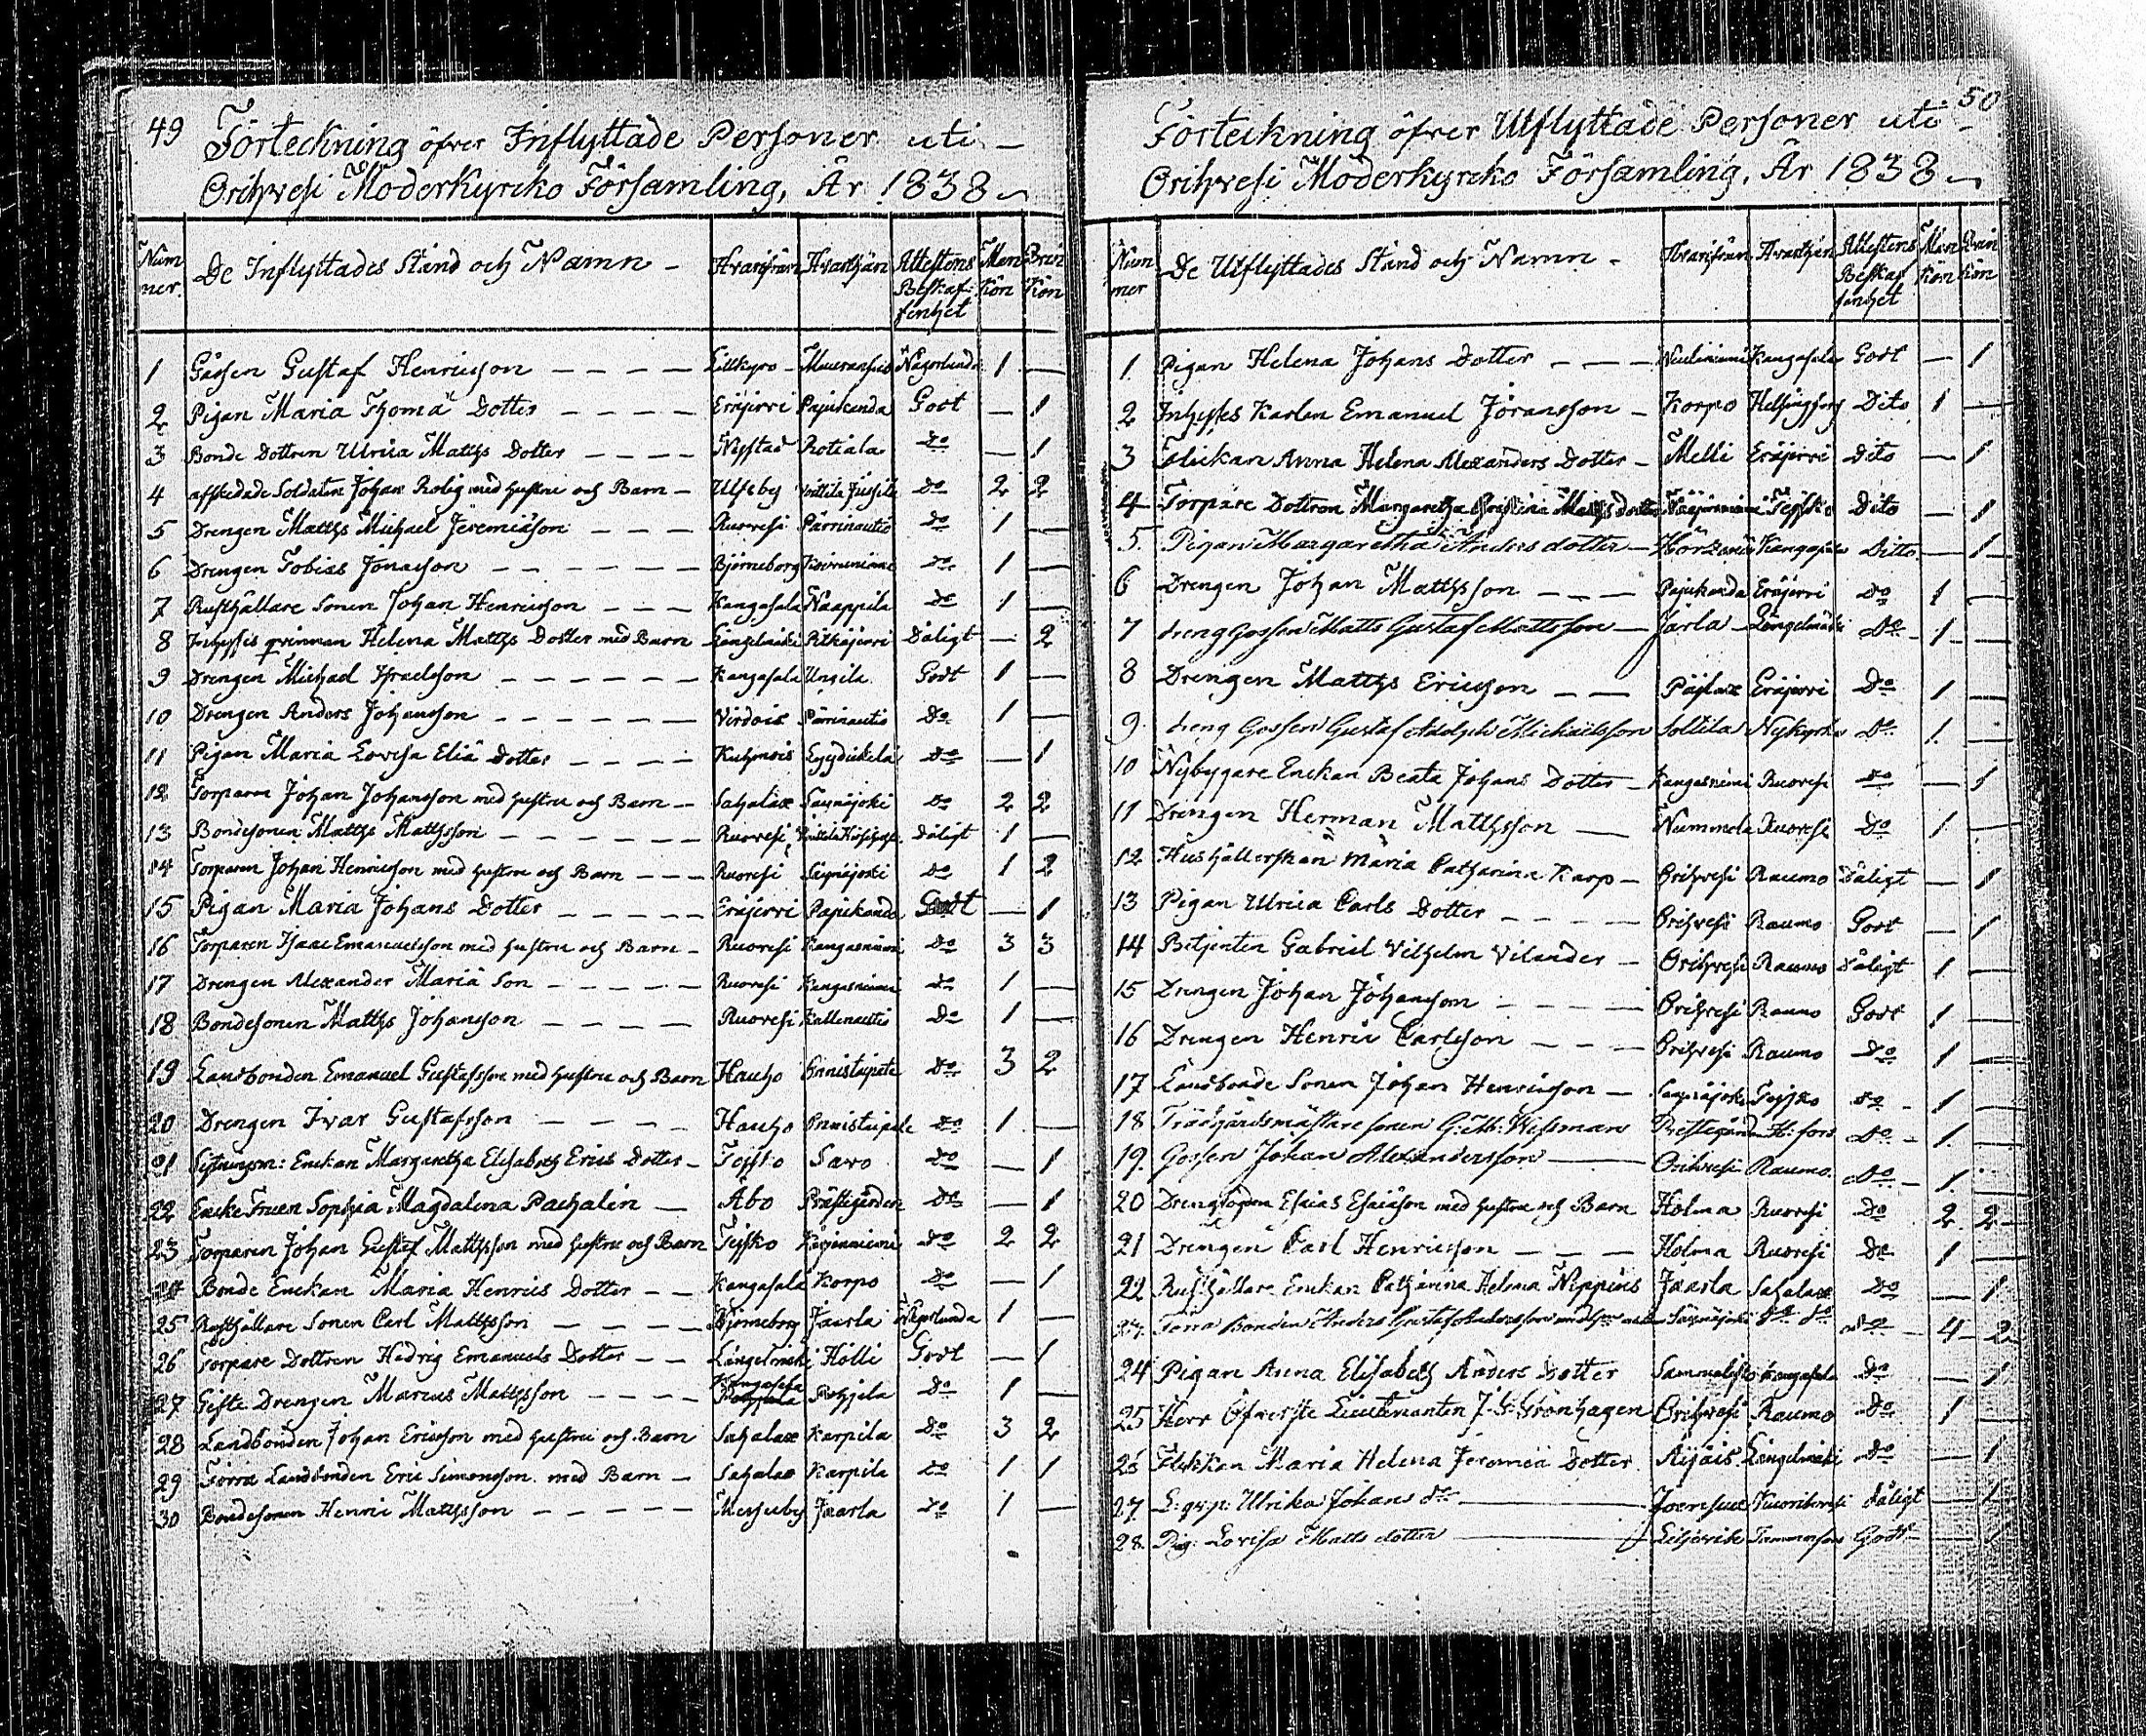 49
Förteckning öfver Inflyttade Personer uti
Orihvesi Moderkyrcko Församling, År 1838
Num mer. De Inflyttades Stånd och Namn - Hvarifrån Hvarthän Attestens Beskaf- fenhet Man Kön Qvin Kön
1 Gåssen Gustaf Henricsson Någorlunda 1 —
2 Pigan Maria Thomä Dotter Eräjervi Pajukanda Godt — 1
3 Bonde Dottren Ulrica Matths Dotter Nystad Rotiala Do — 1
4 afskedade Soldaten Johan Rolig med hustru och Barn Ulfsby Do 2 2
5 Drengen Matths Michael Jeremiäson Ruovesi Pärrinautio Do 1 —
6 Drengen Tobias Jonasson Björneborg Do 1 —
7 Rusthållare Sonen Johan Henricsson Kangasala Naappila Do 1 —
8 Inhyses qvinnan Helena Matths Dotter med Barn Längelmäki Pitkäjervi Dåligt — 2
9 Drengen Michael Israelsson Kangasala Ungila Godt 1 —
10 Drengen Anders Johansson Virdois Pärrinautio Do 1 —
11 Pigan Maria Lovisa Eliä Dotter Kuhmois Do — 1
12 Torparen Johan Johansson med hustru och Barn Sahalax Säynäjoki Do 2 2
13 Bondesonen Matths Matthsson Ruovesi Dåligt 1 —
14 Torparen Johan Henricsson med hustru och Barn Ruovesi Säynäjoki Do 1 2
15 Pigan Maria Johans Dotter Eräjervi Pajukanda Godt — 1
16 Torparen Isaac Emanuelsson med hustru och Barn Ruovesi Kangasniemi Do 3 3
17 Drengen Alexander Mariä Son Ruovesi Kangasniemi Do 1 —
18 Bondesonen Matths Johansson Ruovesi Kallenautio Do 1 —
19 Landbonden Emanuel Gustafsson med hustru och Barn Hauho Onnistaipale Do 3 2
20 Drengen Ivar Gustafsson Hauho Onnistaipale Do 1 —
21 Enckan Margaretha Elisabeth Erics Dotter Teisko Savo Do — 1
22 Encke Fruen Sophia Magdalena Pachalén Åbo Prästegården Do — 1
23 Torparen Johan Gustaf Matthsson med hustru och Barn Teisko Do 2 2
24 Bonde Enckan Maria Henrics Dotter Kangasala Korpo Do — 1
25 Rusthållare Sonen Carl Matthsson Björneborg Jaarla Någorlunda 1 —
26 Torpare Dottren Hedvig Emanuels Dotter Längelmäki Holli Godt — 1
27 Gifte Drengen Marcus Matthsson Kangasala Do 1 —
28 Landbonden Johan Ericsson med hustru och Barn Sahalax Karpila Do 3 2
29 Förra Landbonden Eric Simonsson med Barn Sahalax Karpila Do 1 1
30 Bondesonen Henric Matthsson Jaarla Do 1 —
50
Förteckning öfver Utflyttade Personer uti
Orihvesi Moderkyrcko Församling, År 1838
Num mer De Utflyttades Stånd och Namn - Hvarifrån Hvarthän Attestens Beskaf fenhet Man Kön Qvin Kön
1. Pigan Helena Johans Dotter Kangasala Godt — 1
2 Inhyses Karlen Emanuel Jöransson Korpo Helsingfors Dito 1 —
3 Flickan Anna Helena Alexanders Dotter Melli Eräjervi Dito — 1
4 Torpare Dottren Margaretha Christina Matths Dotter Teisko Dito — 1
5. Pigan Margaretha Anders dotter Kangasala Ditto — 1
6 Drengen Johan Matthsson Pajukanda Eräjervi Do 1 —
7 drengGossen Matts Gustaf Mattsson Jarla Längelmäki Do 1 —
8 Drengen Matths Ericsson Eräjervi Do 1 —
9. dreng Gossen Gustaf Adolph Michaelsson Soltila Nykyrko Do 1 —
10 Nybygare Enckan Beata Johans Dotter Kangasniemi Ruovesi Do — 1
11 Drengen Herman Matthsson Nummela Ruovesi Do 1 —
12 Hushållerskan Maria Catharina Karp Orihvesi Raumo Dåligt — 1
13 Pigan Ulrica Carls Dotter Orihvesi Raumo Godt — 1
14 Betjenten Gabriel Vilhelm Vilander Orihvesi Raumo Dåligt 1 —
15 Drengen Johan Johansson Orihvesi Raumo Godt 1 —
16 Drengen Henric Carlsson Orihvesi Raumo Do 1 —
17 Landbonde Sonen Johan Henricsson Säynäjoki Teisko Do 1 —
18 Trädgårdsmästare sonen Wissman Prestegården H:fors Do 1 —
19. Gossen Johan Alexandersson Orihvesi Raumo Do 1 —
20 Esaias Esaiäson med hustru och Barn Holma Ruovesi Do 2 2
21 Drengen Carl Henricsson Holma Ruovesi Do 1 —
22 Rusthållare Enckan Catharina Helena Nippius Jaarla Sahalax Do — 1
23. Förra Bonden Anders Gustaf Säynäjoki Do Do Do 4 2
24 Pigan Anna Elisabeth Anders Dotter Kangasala Do — 1
25 Herr Öfverste Lieutenanten J. G. Grönhagen Orihvesi Raumo Do 1 —
26 Flickan Maria Helena Jeremiä Dotter Längelmäki Do — 1
27 Ulrika Johans dr dåligt — 1
28. Pig. Lovisa Matts dotter Tammerfors Godt — 1